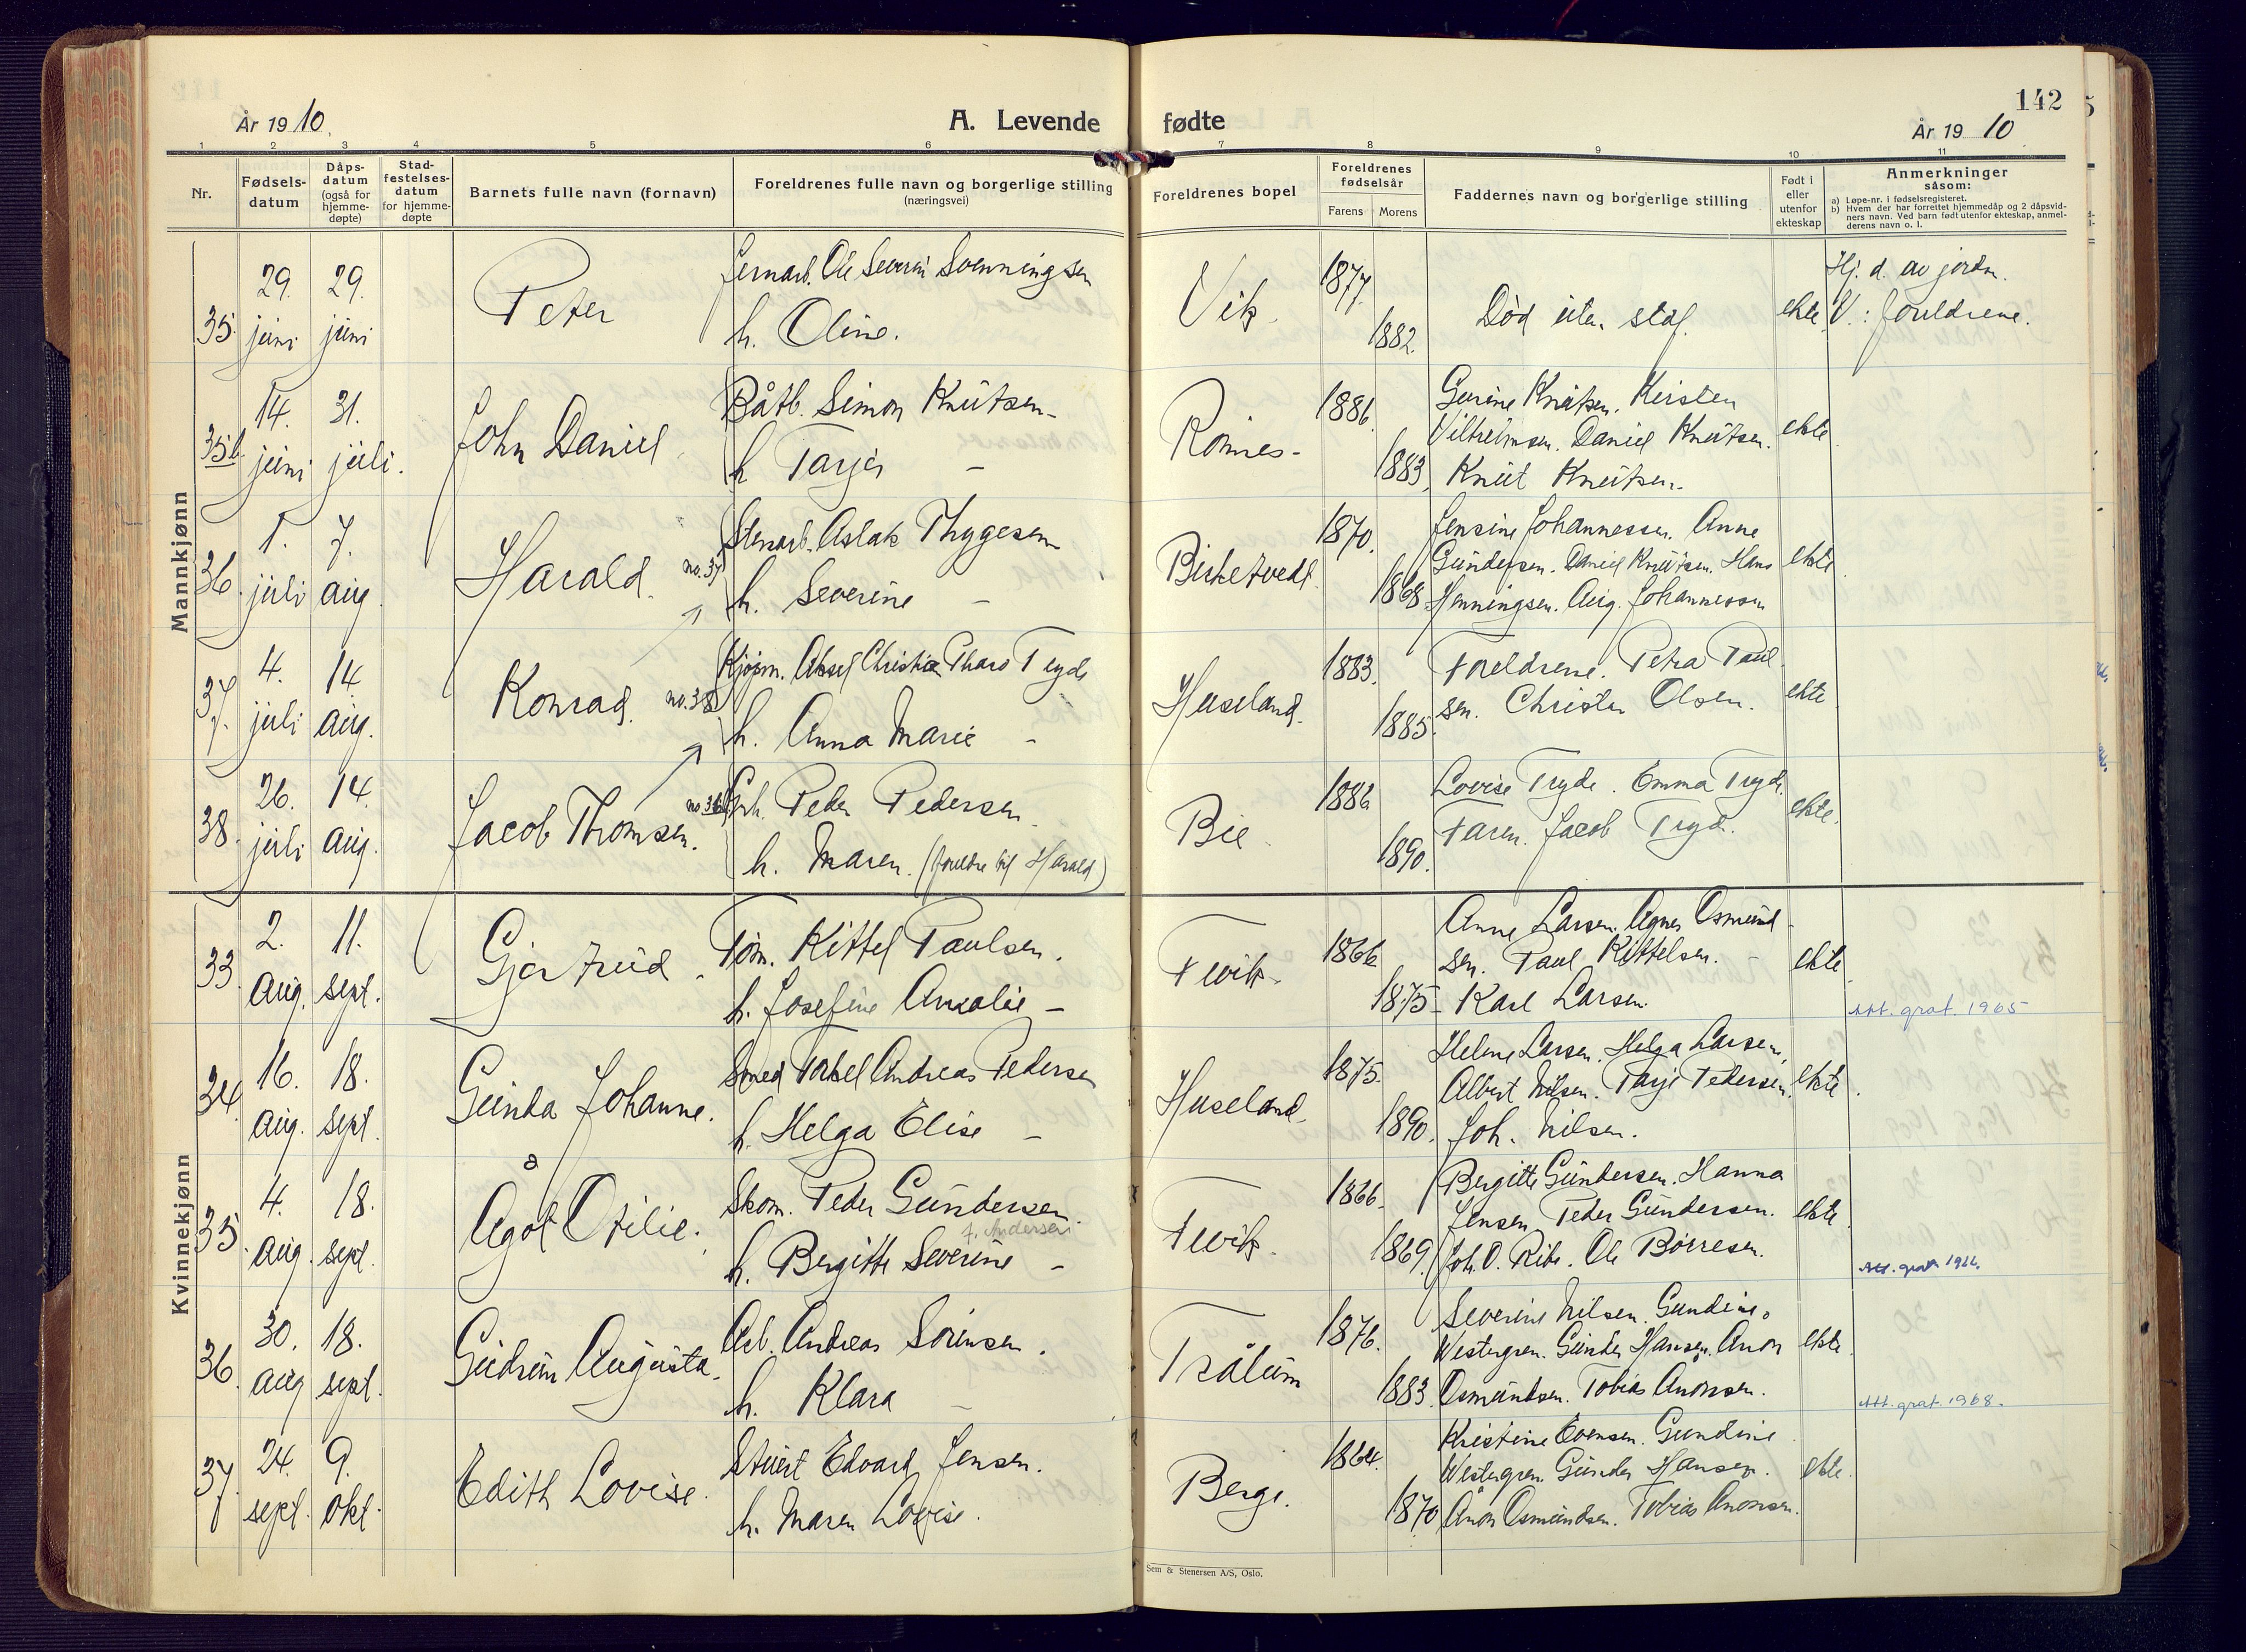 142
År 1910.
A. Levende fødte
År 1910
1 2 3 4 5 6 7 8 9 10 11
Nr.
Fødsels-
datum
Dåps-
datum
(også for
hjemme-
døpte)
Stad-
festelses-
datum
for hjemme-
døpte
Barnets fulle navn (fornavn)
Foreldrenes fulle navn og borgerlige stilling
(næringsvei)
Foreldrenes bopel
Foreldrenes
fødselsår
Farens Morens
Faddernes navn og borgerlige stilling
Født i
eller
utenfor
ekteskap
Anmerkninger
såsom:
a) Løpe-nr. i fødselsregisteret.
b) Hvem der har forrettet hjemmedåp og 2 dåpsvid-
ners navn. Ved barn født utenfor ekteskap, anmel-
derens navn o. l.
Mannkjønn
35.
29.
juni
29.
juni
Peter
Jernarb. Ole Severin Svenningsen
h. Oline.
Vik
1877.
1882.
Død uten
ekte
Hj. d. av jordm.
V.: foreldrene.
35b
14.
juni
31.
juli.
John Daniel
Båtb. Simon Knutsen -
h Tarjer -
Romnes -
1886.
1883.
Gurine Knutsen. Kirsten
Vilhelmsen. Daniel Knutsen.
Knut Knutsen.
ekte
36.
1.
juli
7.
aug.
Harald.
no. 37
Stenarb. Aslak Thygesen
h. Severine -
Birketvedt.
1870.
1868.
Jensine Johannessen. Anne
Gundersen. Daniel Knutsen. Hans
Henningsen. Aug. Johannessen
ekte
37.
4.
juli
14.
aug.
Konrad.
no. 38
Kjøpm. Aksel Christian Tharo Tryde
h. Anna Marie -
Huseland.
1883.
1885.
Foreldrene. Petra Paul-
sen. Christen Olsen.
ekte
38.
26.
juli
14.
aug.
Jacob Thomsen.
no. 36
Peder Pedersen
h. Maren. (foreldre til Harald)
Bie.
1886
1890.
Lovise Tryde. Emma Tryde.
Faren. Jacob Tryde.
ekte.
Kvinnekjønn
33.
2.
aug.
11.
sept.
Gjertrud.
Tøm. Kittel Paulsen.
h. Josefine Amalie -
Fevik.
1866
1875
Anne Larsen. Agnes Osmund-
sen. Paul Kittelsen. -
Karl Larsen.
ekte
Att. grat. 1965
34.
16.
aug.
18.
sept.
Gunda Johanne.
Smed Torkel Andreas Pedersen
h. Helga Elise -
Huseland.
1875.
1890.
Helene Larsen. Helga Larsen.
Albert Nilsen. Tarje Pedersen.
Joh. Nilsen.
ekte
35.
4.
aug.
18.
sept.
Ågot Otilie.
Skom. Peder Gundersen.
f. Andersen.
h. Bergitte Severine -
Fevik.
1866.
1869.
Bergitte Gundersen. Hanna
Jensen. Peder Gundersen.
Joh. O. Ribe. Ole Børresen.
ekte
Att. grat 1966.
36.
30.
aug
18.
sept.
Gudrun Augusta.
Arb. Andreas Sørensen.
h. Klara -
Trålum
1876.
1883.
Severine Nilsen. Gundine
Westergren. Gunder Hansen. Anon
Osmundsen. Tobias Anonsen.
ekte
Att. grat. 1968.
37.
24.
sept.
9.
okt.
Edith Lovise.
Stuert Edvard Jensen.
h. Maren Lovise.
Berge.
1864.
1870
Kristine Evensen. Gundine
Westergren. Gunder Hansen.
Anon Osmundsen. Tobias Anonsen.
ekte.
Sem & Stenersen A/S, Oslo.